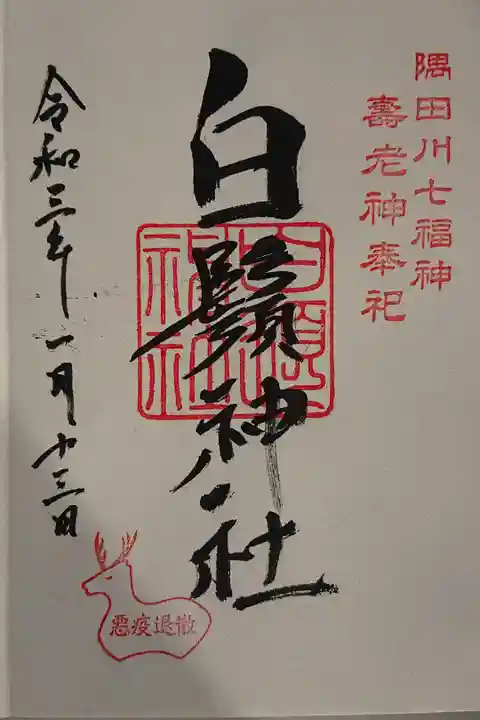 隅田川七福神
壽老神奉祀
白鬚神社
令和三年一月十三日
悪疫退散